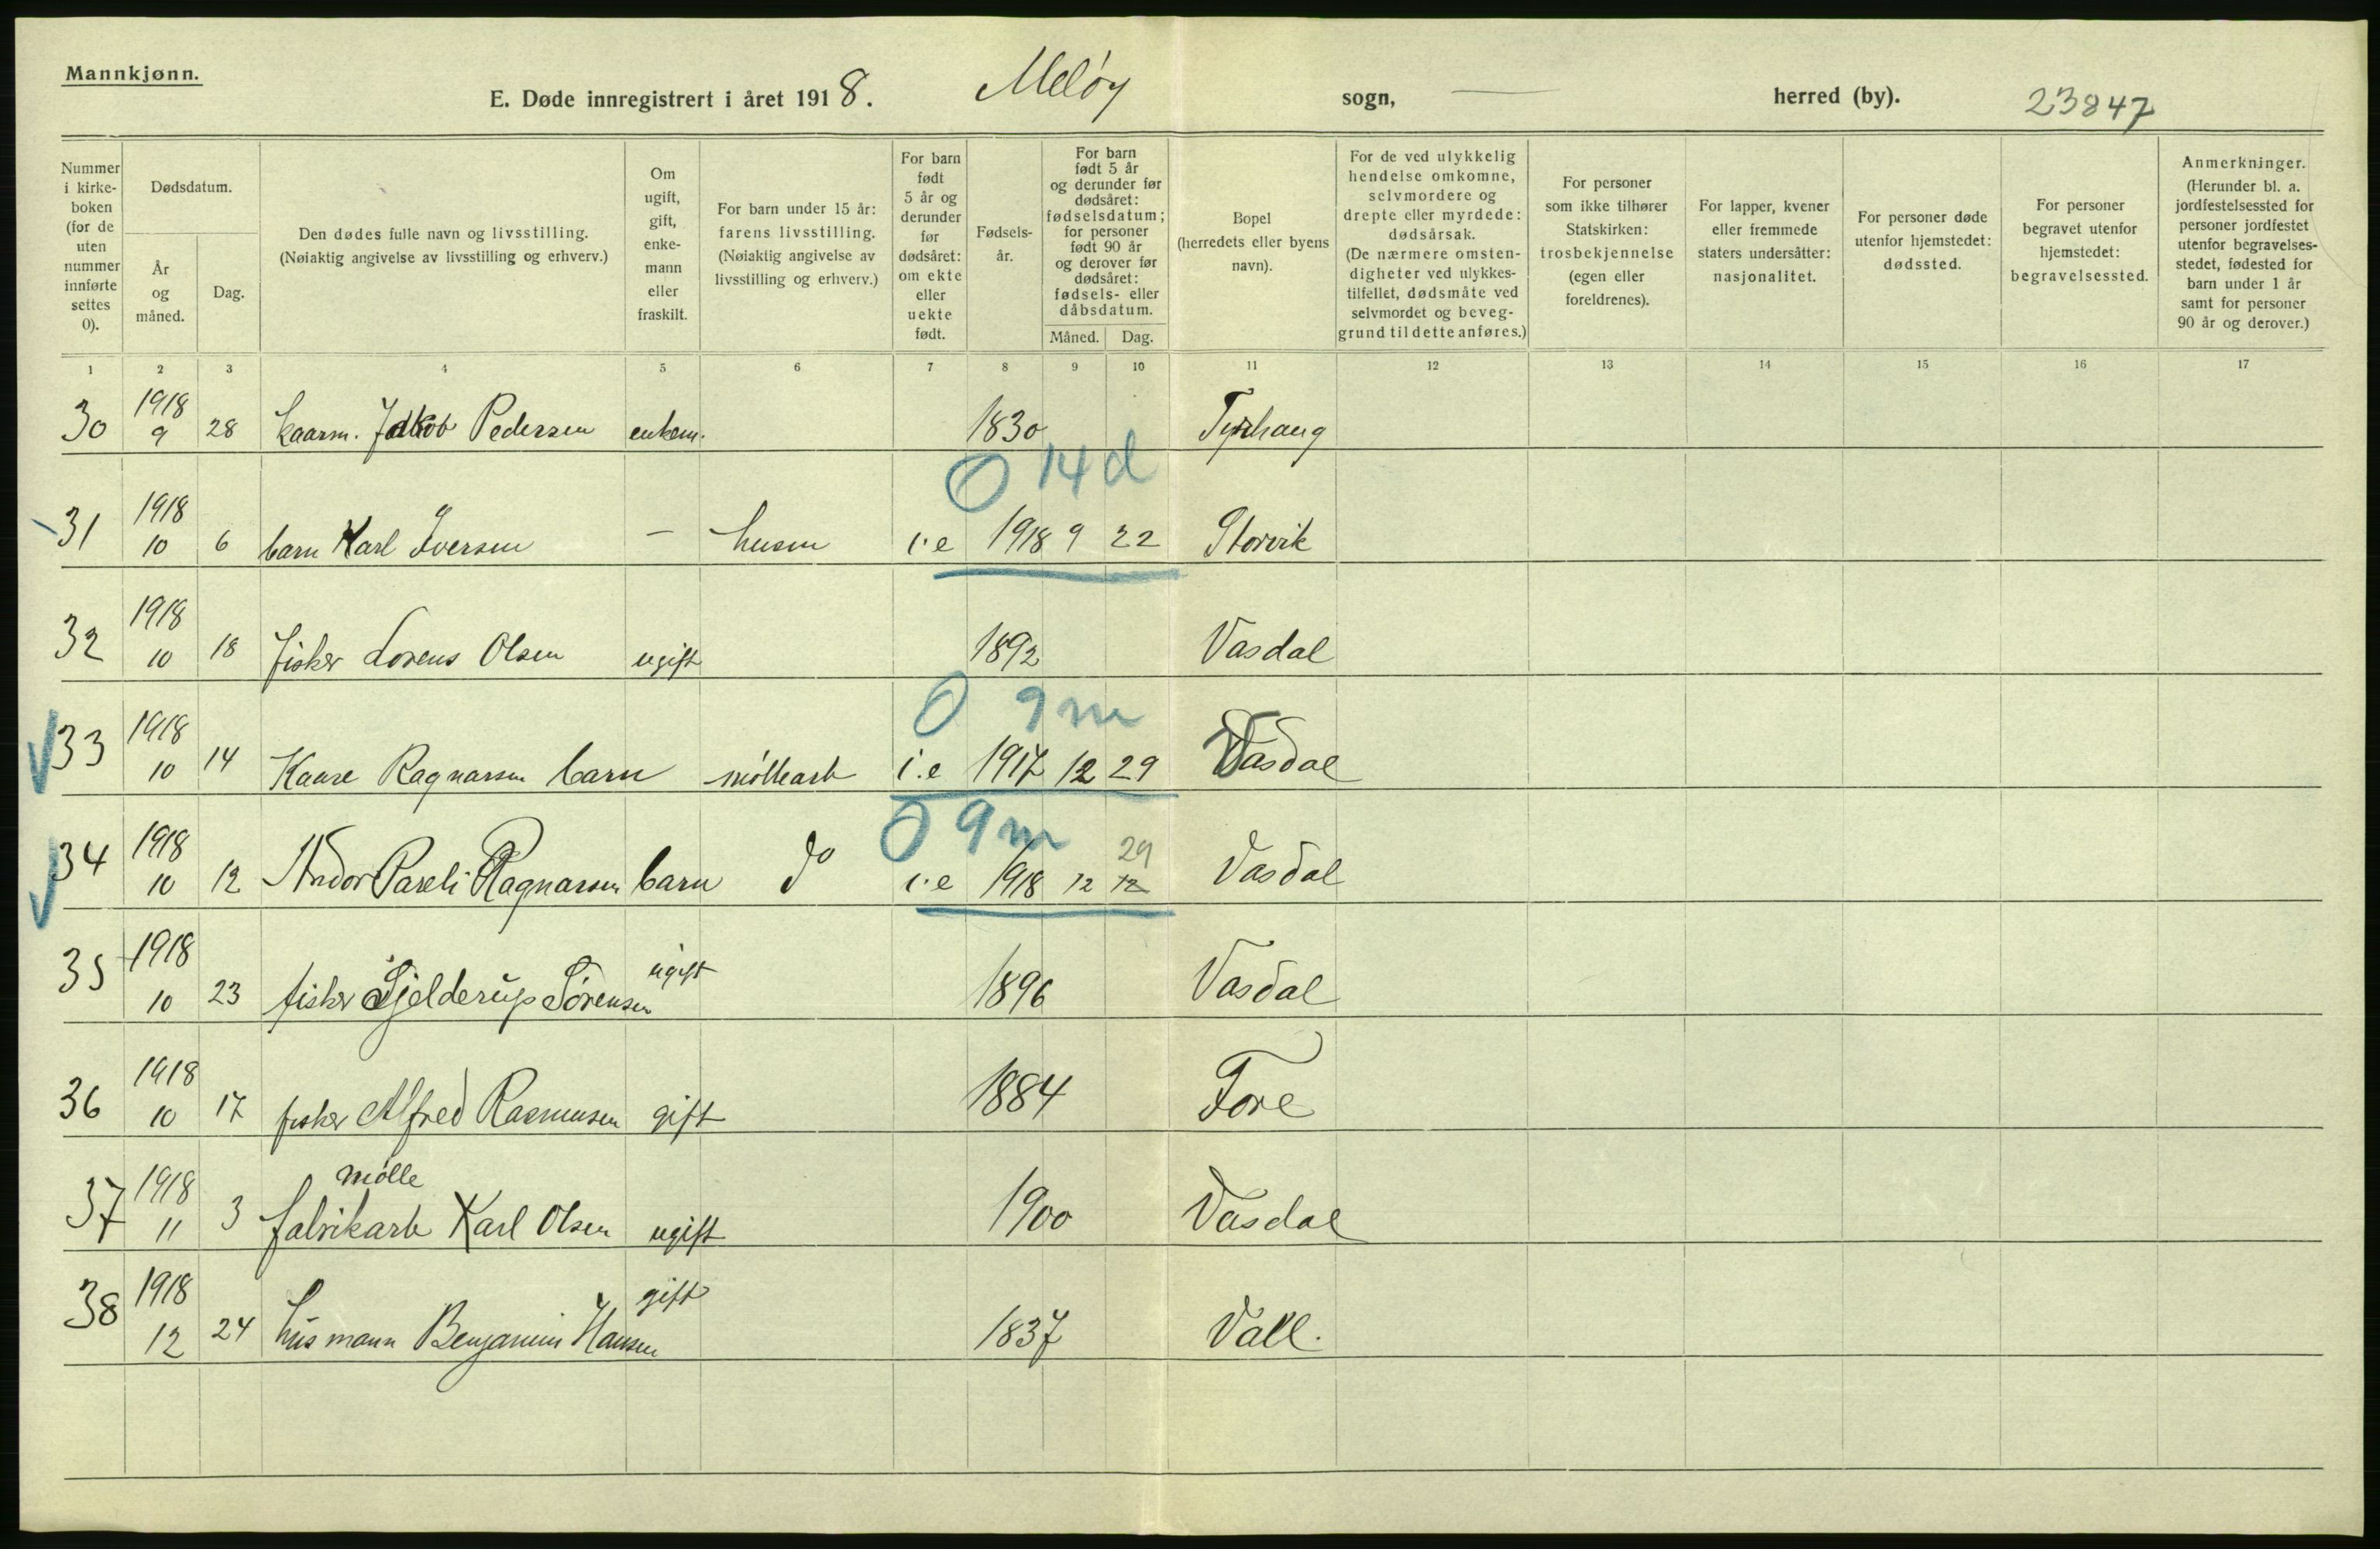 Mannkjønn.
E. Døde innregistrert i året 1918. Meløy sogn, — herred (by). 23847
Nummer i kirke-boken (for de uten nummer innførte settes 0).
Dødsdatum.
År og måned.
Dag.
Den dødes fulle navn og livsstilling.
(Nøiaktig angivelse av livsstilling og erhverv.)
Om ugift, gift, enke-mann eller fraskilt.
For barn under 15 år: farens livsstilling.
(Nøiaktig angivelse av livsstilling og erhverv.)
For barn født 5 år og derunder før dødsåret: om ekte eller uekte født.
Fødsels-år.
For barn født 5 år og derunder før dødsåret: fødselsdatum; for personer født 90 år og derover før dødsåret: fødsels- eller dåbsdatum.
Måned. Dag.
Bopel (herredets eller byens navn).
For de ved ulykkelig hendelse omkomne, selvmordere og drepte eller myrdede: dødsårsak.
(De nærmere omsten-digheter ved ulykkes-tilfellet, dødsmåte ved selvmordet og beveg-grund til dette anføres.)
For personer som ikke tilhører Statskirken: trosbekjennelse (egen eller foreldrenes).
For lapper, kvener eller fremmede staters undersåtter: nasjonalitet.
For personer døde utenfor hjemstedet: dødssted.
For personer begravet utenfor hjemstedet: begravelsessted.
Anmerkninger.
(Herunder bl. a. jordfestelsessted for personer jordfestet utenfor begravelses-stedet, fødested for barn under 1 år samt for personer 90 år og derover.)
1 2 3 4 5 6 7 8 9 10 11 12 13 14 15 16 17
30 1918 9 28 kaarm. Jakob Pedersen enkem. 1830
0 14 d
31 1918 10 6 barn Karl Iversen — husm i.e 1918 9 22 Storvik
32 1918 10 18 fisker Lorens Olsen ugift 1892 Vasdal
0 9 m
33 1918 10 14 Kaare Ragnarsen barn møllearb i.e 1917 12 29 Vasdal
0 9 m
29
34 1918 10 12 Andor Pareli Ragnarsen barn do i.e 1918 12 12 Vasdal
35 1918 10 23 fisker Gjelderup Sørensen ugift 1896 Vasdal
36 1918 10 17 fisker Alfred Rasmusen gift 1884 Fore
mølle
37 1918 11 3 fabrikarb Karl Olsen ugift 1900 Vasdal
38 1918 12 24 husmann Benjamin Hansen gift 1837 Vall.